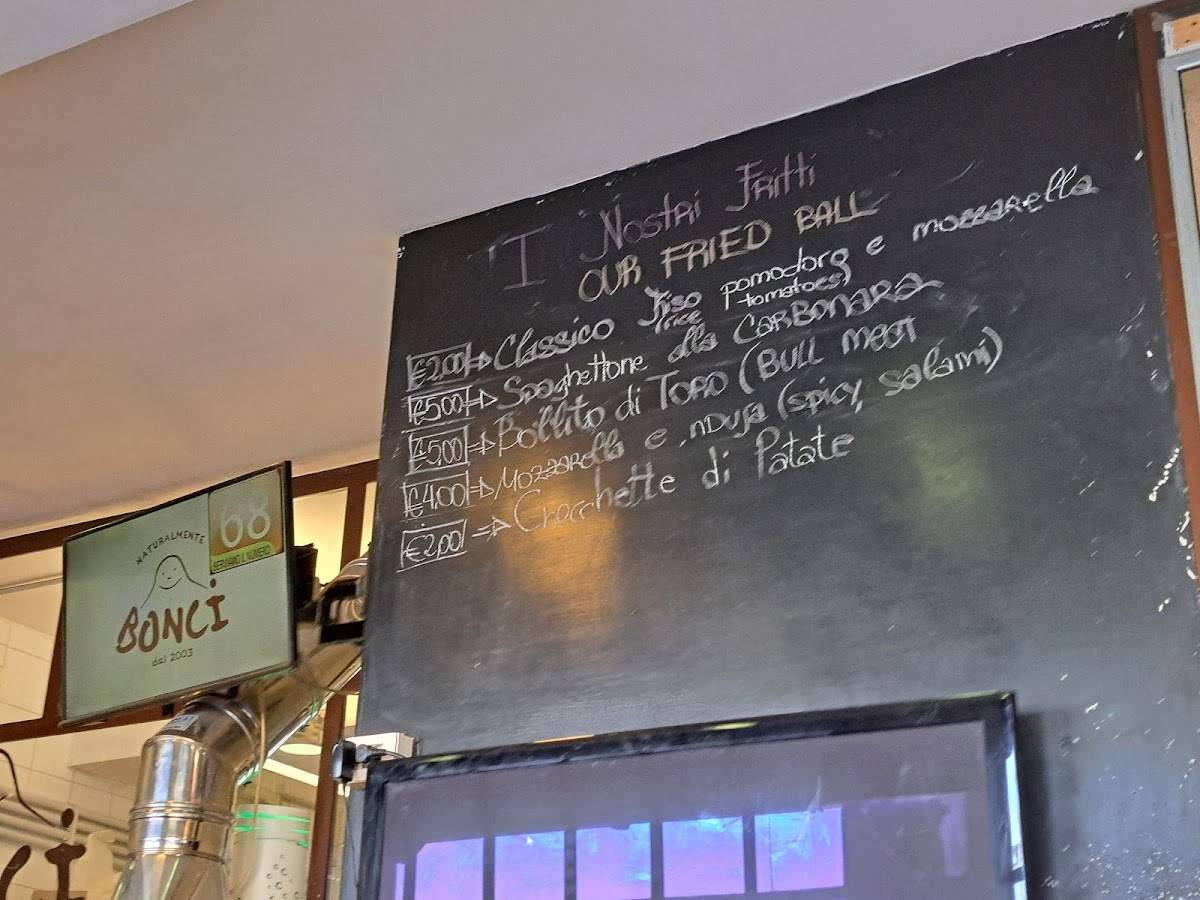 I Nostri Fritti
OUR FRIED BALL
€2,00 => Classico Riso pomodoro e mozzarella
(rice tomatoes)
€5,00 => Spaghettone alla CARBONARA
€5,00 => Bollito di TORO (BULL MEAT
€4,00 => MOZZARELLA e NDUJA (SPICY SALAMI)
€2,00 => Crocchette di Patate
68
SERVIAMO IL NUMERO
NATURALMENTE
BONCi
dal 2003